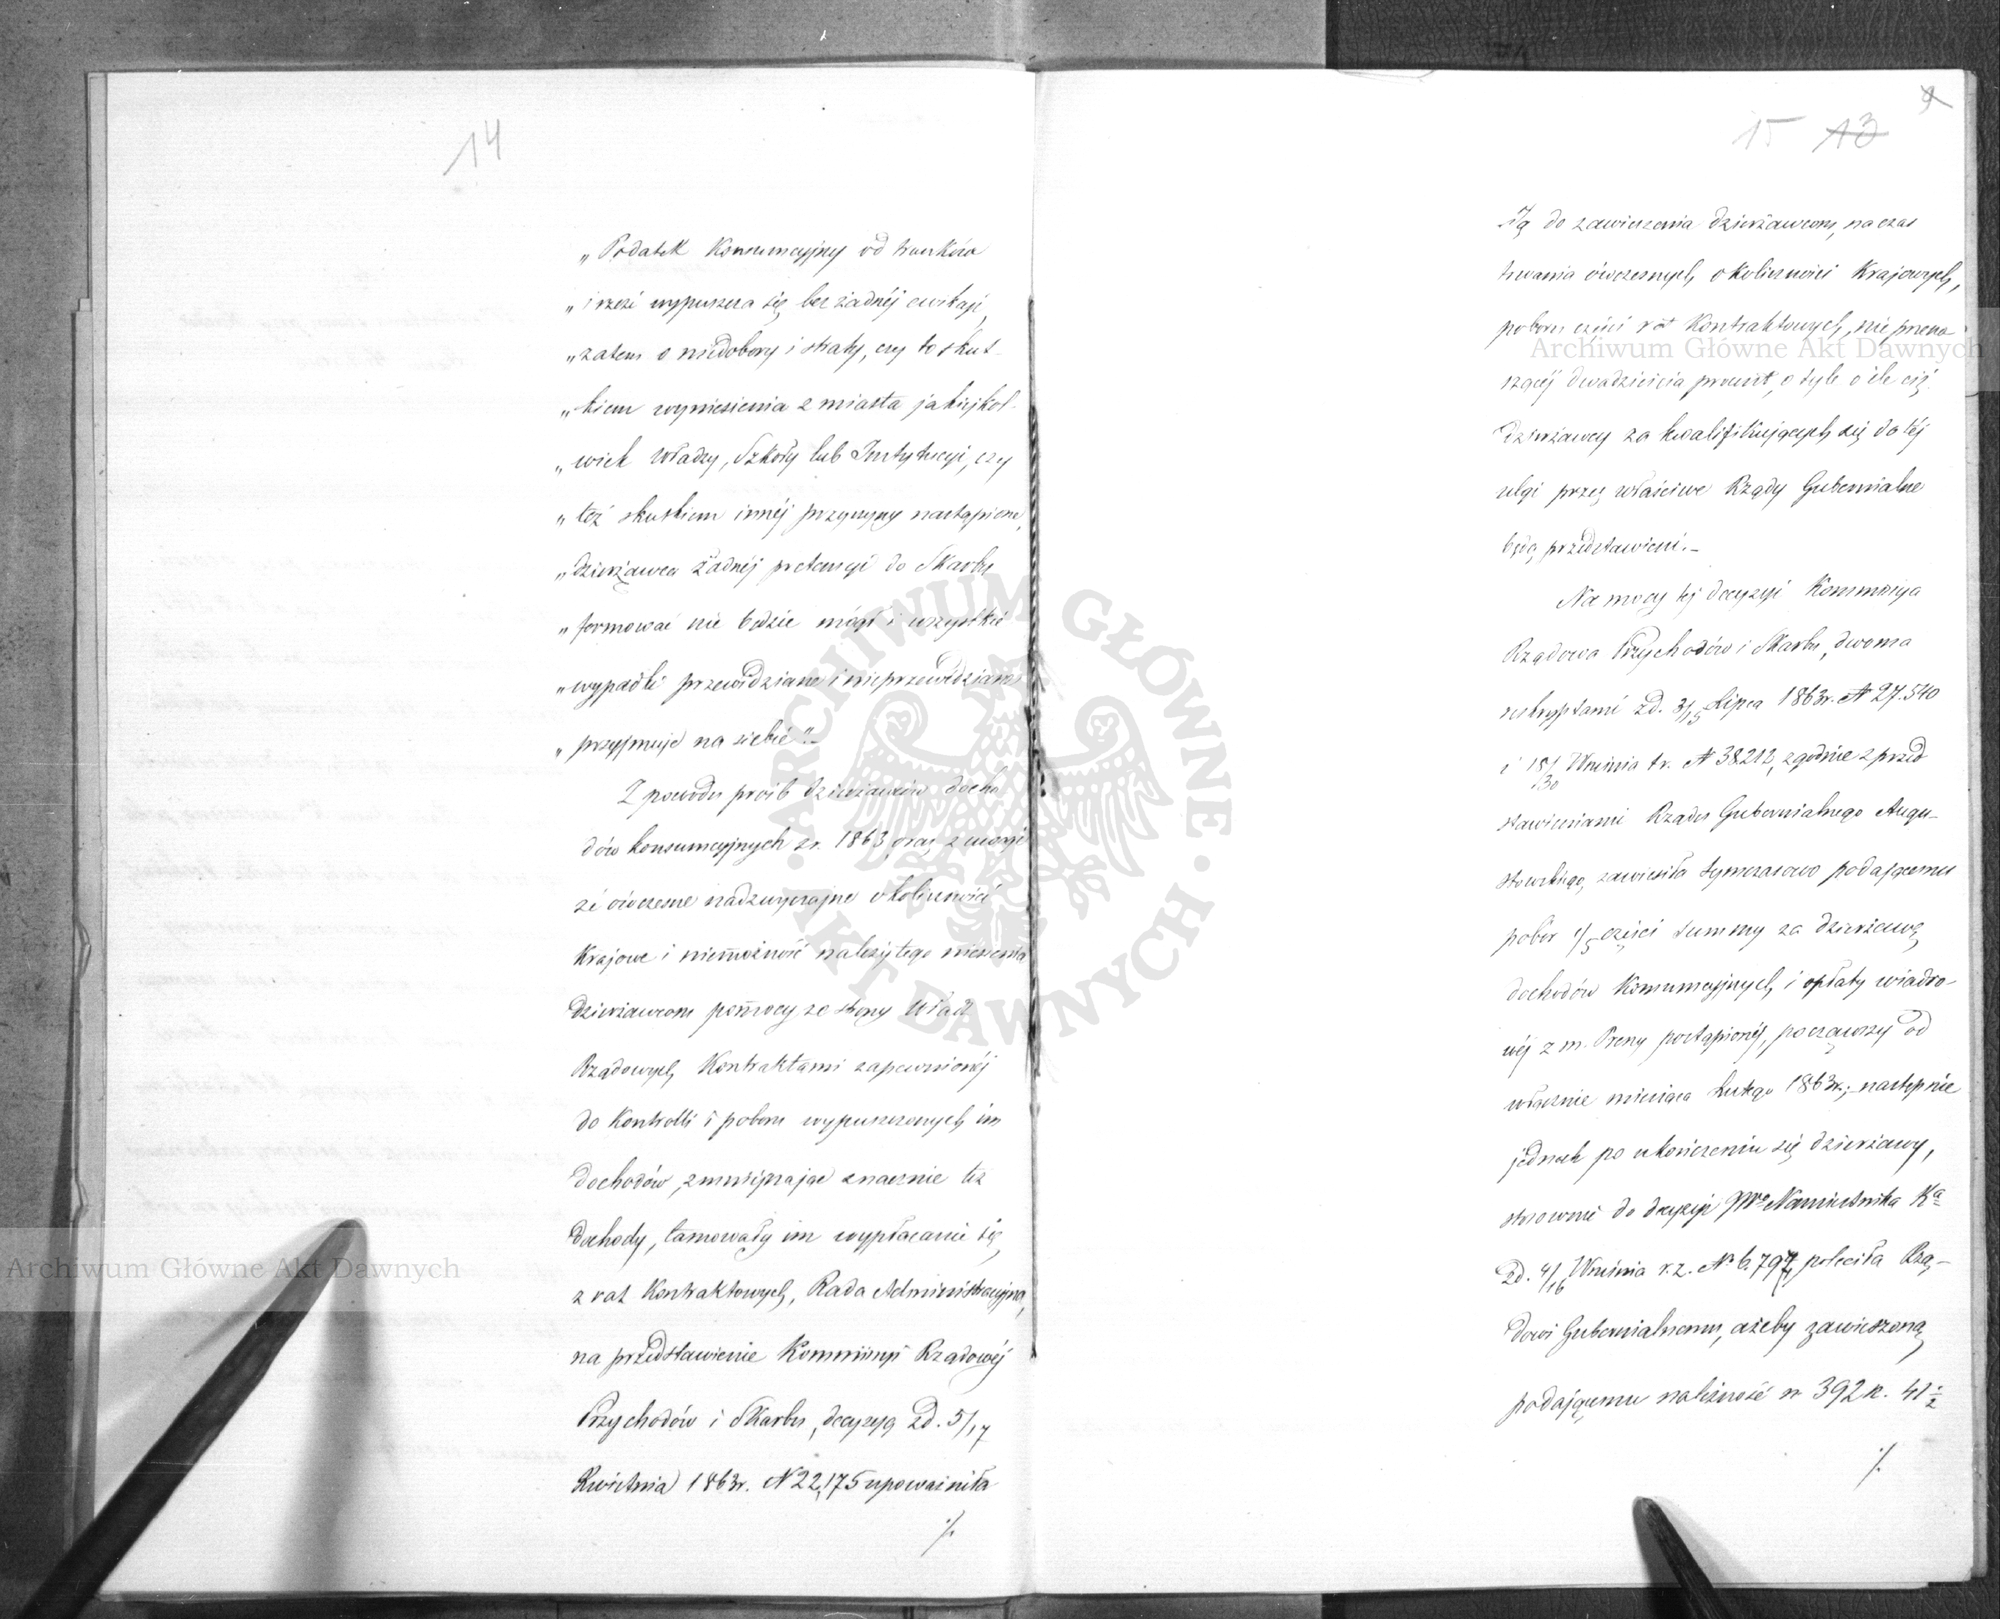 14
„Podatek Konsumcyjny od trunków
„i rzezi wypuszcza się bez żadnéj ewikcji,
„zatem o niedobory i straty, czy to skut-
„kiem wyniesienia z miasta jakiejkol-
„wiek Władzy, Szkoły lub Instytucyi, czy
„też skutkiem innéj przyczyny nastąpione,
„dzierżawca żadnéj pretensyi do Skarbu
„formować nie będzie mógł i wszystkie
„wypadki przewidziane i nieprzewidziane
„przyjmuje na siebie".-
Z powodu próśb dzierżawców docho
dów konsumcyjnych z r. 1863 oraz z uwagi
że ówczesne nadzwyczajne okoliczności
Krajowe i niemożność należytego niesienia
Dzierżawcom pomocy ze strony Władz
Rządowych, Kontraktami zapewnionéj
do Kontrolli i poboru wypuszczonych im
dochodów, zmniejszając znacznie też
dochody, tamowały im wypłacanie się
z rat Kontraktowych, Rada Administracyjna,
na przedstawienie Kommissyi Rządowéj
Przychodów i Skarbu, decyzyą z d. 5/17
Kwietnia 1863 r. N 22,175 upoważniła
./.
9
15 13
Ją do zawieszenia dzierżawcom, na czas
trwania ówczesnych okoliczności Krajowych,
poboru części rat Kontraktowych, nie przeno-
szącéj dwadzieścia procent, o tyle o ile ciż
Dzierżawcy za kwalifikujących się do téj
ulgi przez właściwe Rządy Gubernialne
będą przedstawieni.-
Na mocy tej decyzyi Kommissya
Rządowa Przychodów i Skarbu, dwoma
reskryptami z d. 3/15 Lipca 1863 r. N 27.540
i 18/30 Września t. r. N 38212, zgodnie z przed
stawieniami Rządu Gubernialnego Augu-
stowskiego, zawiesiła tymczasowo podającemu
pobór 1/5 części summy za dzierżawę
dochodów Konsumcyjnych i opłaty wiadro-
wéj z m. Preny postąpionéj, począwszy od
włącznie miesiąca Lutego 1863 r.; następnie
jednak po ukończeniu się dzierżawy,
stosownie do decyzyi JWo Namiestnika Ka
z d. 4/16 Września r. z. No 6.797 poleciła Rzą-
dowi Gubernialnemu, ażeby zawieszoną
podającemu należność rs 392 k. 41 1/2
./.
Archiwum Główne Akt Dawnych
Archiwum Główne Akt Dawnych
ARCHIWUM GŁÓWNE AKT DAWNYCH